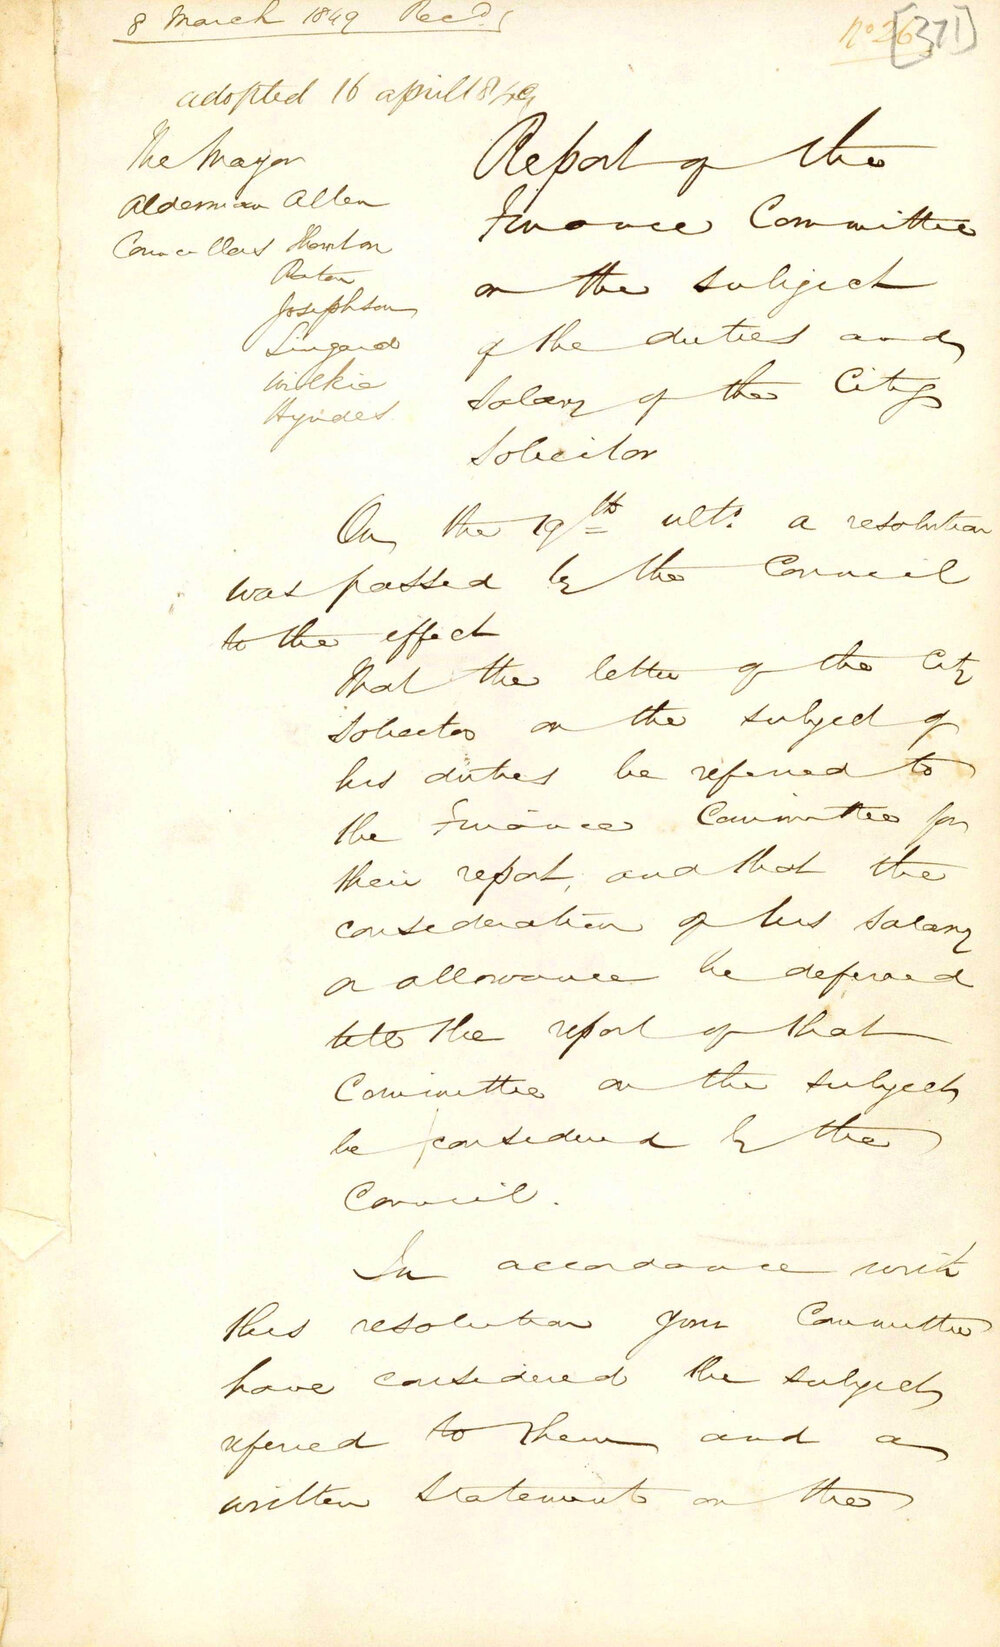 8 March 1849 Recd
No 26 [371]
adopted 16 april 1849
The Mayor
Alderman Allen
Councillors Thornton
Josephson
Lingard
Wilkie
Hyndes.
Report of the
Finance Committee
on the subject
of the duties and
Salary of the City
Solicitor
On the 19th ulto. a resolution
was passed by the Council
to the effect
That the letter of the City
Solicitor on the subject of
his duties be referred to
the Finance Committee for
their report, and that the
consideration of his Salary
or allowance be deferred
till the report of that
Committee on the subject
be considered by the
Council.
In accordance with
this resolution your Committee
have considered the subject
referred to them and a
written Statement on the